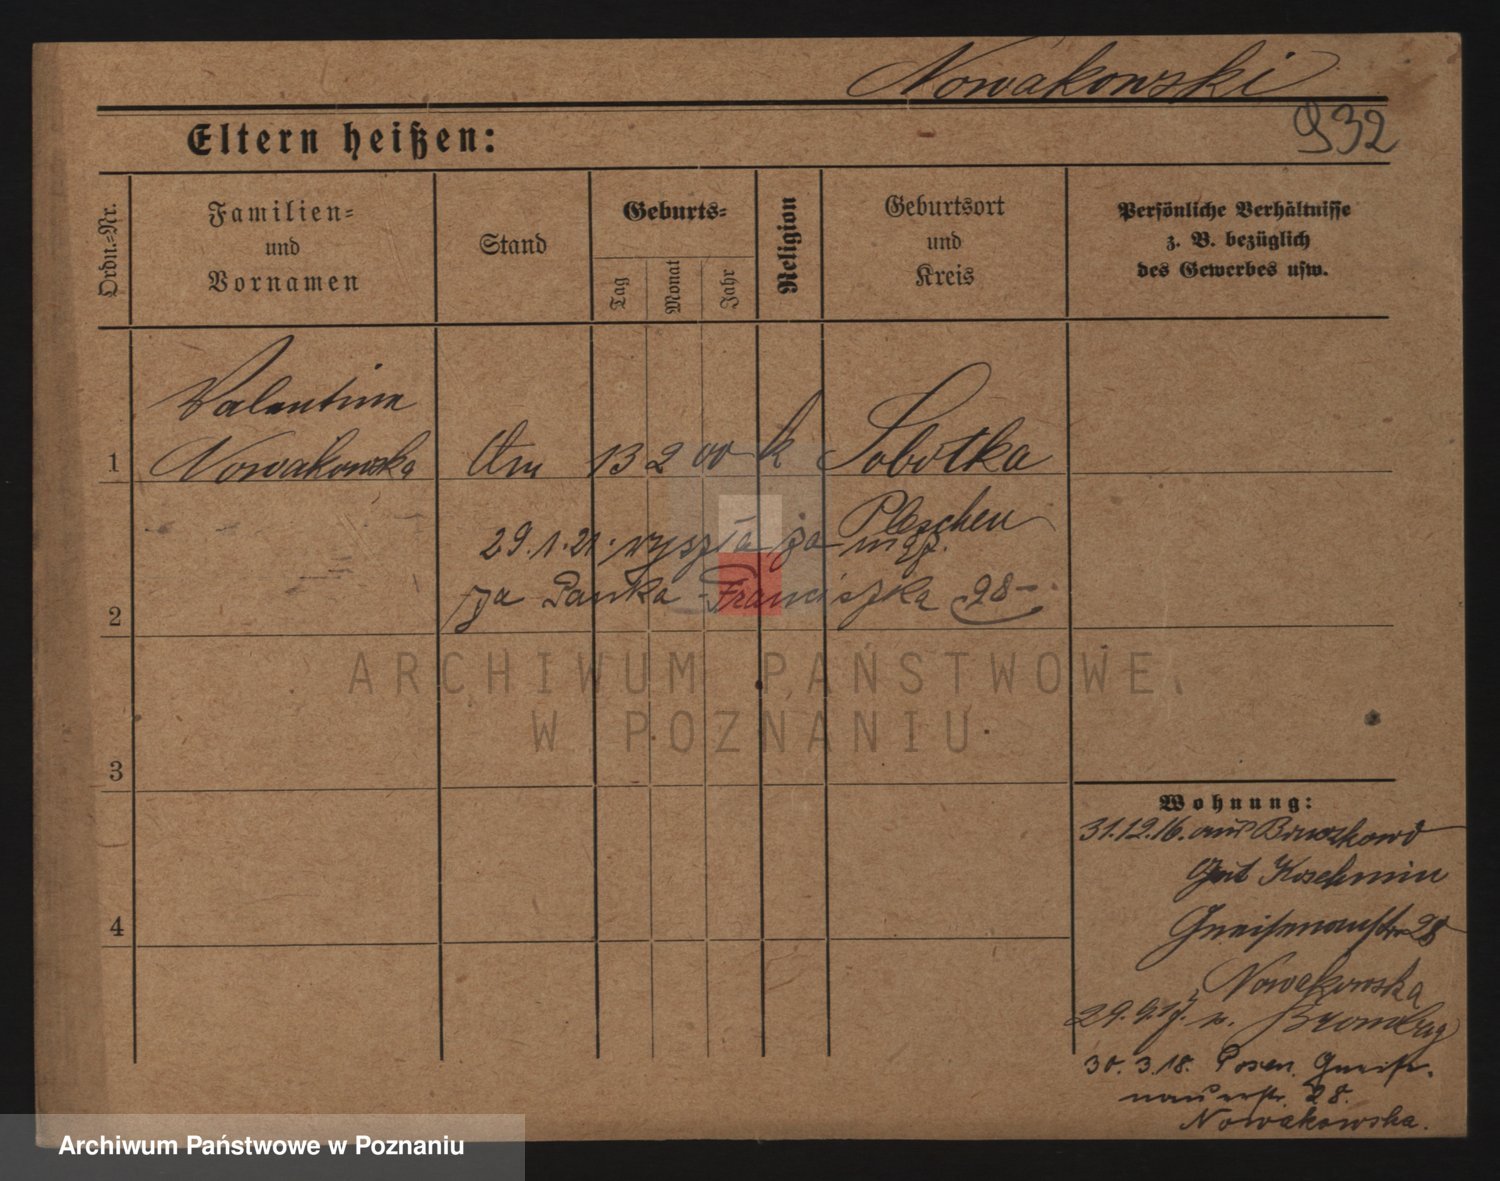 Nowakowski
932
Eltern heißen:
Ordn.-Nr.
Familien-
und
Vornamen
Stand
Geburts-
Tag
Monat
Jahr
Religion
Geburtsort
und
Kreis
Persönliche Verhältnisse
z. B. bezüglich
des Gewerbes usw.
Valentine
1 Nowakowska 13 2 00 k Sobotka
Pleschen
29.1.21. wyszła za mąż.
2 za Pawka Franciszka 98
3
4
Wohnung:
31.12.16. aus
Gut Koschmin
Gneisenaustr 28
Nowakowska
29.9.17. n. Bromberg
30.3.18. Posen. Gneise-
nauerstr. 28.
Nowakowska.
ARCHIWUM PAŃSTWOWE
W POZNANIU
Archiwum Państwowe w Poznaniu